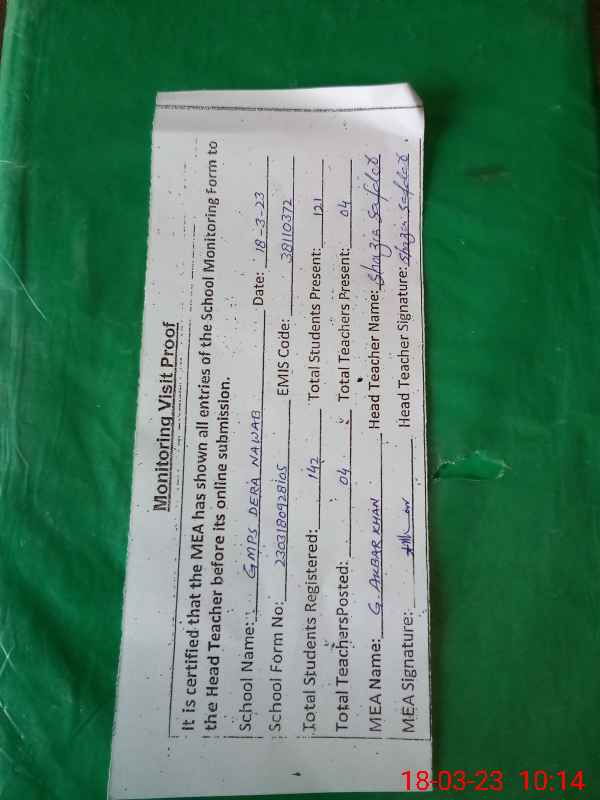 Monitoring Visit Proof
It is certified that the MEA has shown all entries of the School Monitoring Form to
the Head Teacher before its online submission.
School Name: GMPS DERA NAWAB Date: 18-3-23
School Form No: 2303180928105 EMIS Code: 38110372
Total Students Registered: 142 Total Students Present: 121
Total TeachersPosted: 04 Total Teachers Present: 04
MEA Name: G. AKBAR KHAN Head Teacher Name: Shazia Safdar
MEA Signature: Head Teacher Signature: Shazia Safdar
18-03-23 10:14